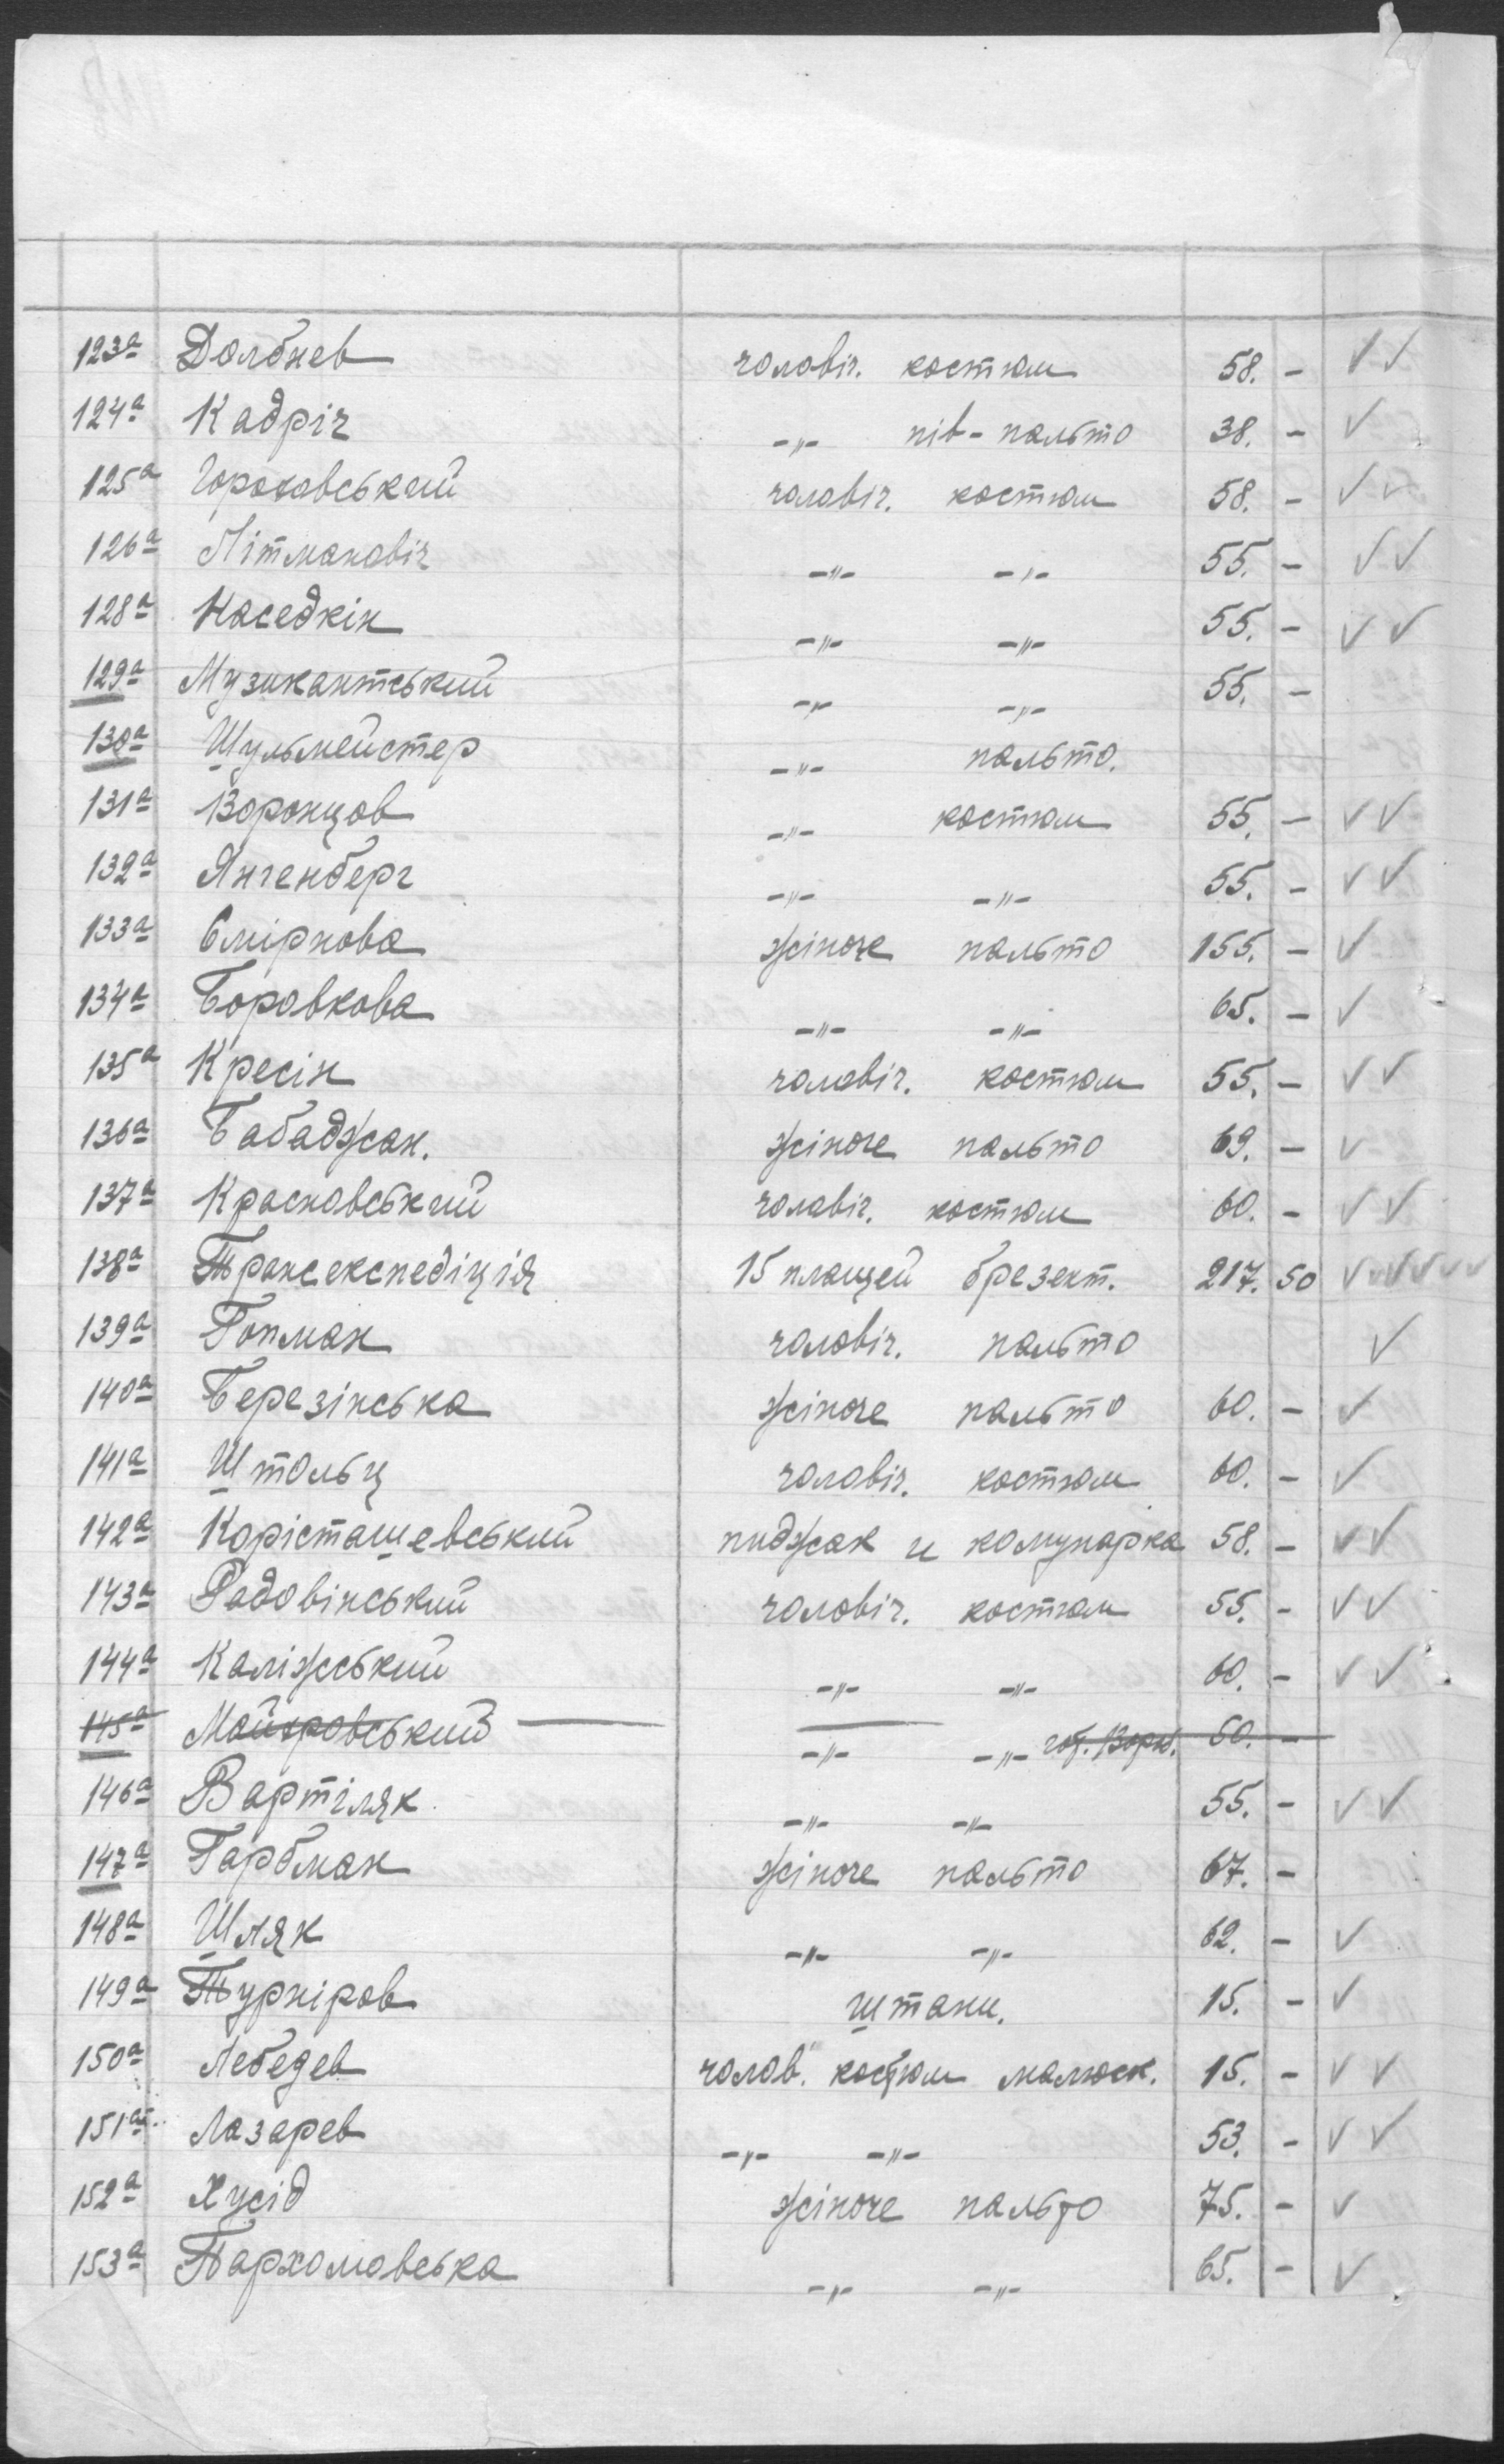 123а Долбнев чоловіч. костюм 58. -
124а Кадріч -"- пів-пальто 38. -
125а Гороховський чоловіч. костюм 58. -
126а Літманавіч -"- -"- 55. -
128а Наседкін -"- -"- 55. -
129а Музикантський -"- -"- 55. -
130а Шульмейстер -"- пальто.
131а Воронцов -"- костюм 55. -
132а Янгенберг -"- -"- 55. -
133а Смірнова жіноче пальто 155. -
134а Боровкова -"- -"- 65. -
135а Кресін чоловіч. костюм 55. -
136а Бабаджан. жіноче пальто 69. -
137а Красновський чоловіч. костюм 60. -
138а Трансекспедіція 15 плащей брезент. 217. 50
139а Гопман чоловіч. пальто
140а Березінська жіноче пальто 60. -
141а Штольц чоловіч. костюм 60. -
142а Корісташевський пиджак и комунарка 58. -
143а Радовінський чоловіч. костюм 55. -
144а Каліжський -"- -"- 60. -
145а Майеровський -"- -"- 60. -
146а Вартіляк -"- -"- 55. -
147а Гарбман жіноче пальто 67. -
148а Шляк -"- -"- 62. -
149а Турніров штани. 15. -
150а Лебедев чолов. костюм малюск. 15. -
151а Лазарев -"- -"- 53. -
152а Хусід жіноче пальто 75. -
153а Пархомовська -"- -"- 65. -